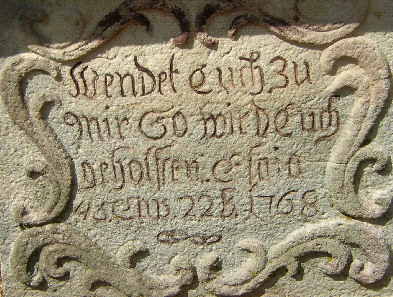 Wendet Euch zu
mir So wird Euch
geholffen. Esaia
45 22 1768